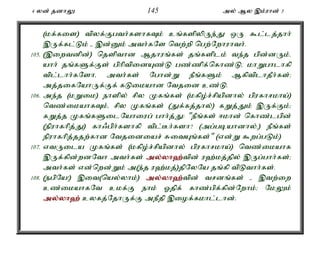 4 லன் தனாலூ 145 அல் ஆல இம்ரான் 3
(மக்களை) விலக்குபவர்களாகவும் உங்களிலிருந்து ஒரு கூட்டத்தார்
இருக்கட்டும் - இன்னும் அவர்களே வெற்றி பெற்றோராவர்.
105. (இறைவனின்) தெளிவான ஆதாரங்கள் தங்களிடம் வந்த பின்னரும்,
யார் தங்களுக்குள் பிரிவினையுண்டு பண்ணிக்கொண்டு, மாறுபாடாகி
விட்டார்களோ, அவர்கள் போன்று நீங்களும் ஆகிவிடாதீர்கள்;
அத்தகையோருக்குக் கடுமையான வேதனை உண்டு.
106. அந்த (மறுமை) நாளில் சில முகங்கள் (மகிழ்ச்சியினால் பிரகாசமாய்)
வெண்மையாகவும், சில முகங்கள் (துக்கத்தால்) கறுத்தும் இருக்கும்;
கறுத்த முகங்களுடையோரைப் பார்த்து: "நீங்கள் ஈமான் கொண்டபின்
(நிராகரித்து) காஃபிர்களாகி விட்டீர்களா? (அப்படியானால்,) நீங்கள்
நிராகரித்ததற்கான வேதனையைச் சுவையுங்கள்" (என்று கூறப்படும்)
107. எவருடைய முகங்கள் (மகிழ்ச்சியினால் பிரகாசமாய்) வெண்மையாக
இருக்கின்றனவோ அவர்கள் அல்லாஹ்வின் ரஹ்மத்தில் இருப்பார்கள்;
அவர்கள் என்றென்றும் அ(ந்த ரஹ்மத்)திலேயே தங்கி விடுவார்கள்.
108. (நபியே!) இவை(யெல்லாம்) அல்லாஹ்வின் வசனங்கள் - இவற்றை
உண்மையாகவே உமக்கு நாம் ஓதிக் காண்பிக்கின்றோம்; மேலும்
அல்லாஹ் உலகத்தோருக்கு அநீதி இழைக்கமாட்டான்.